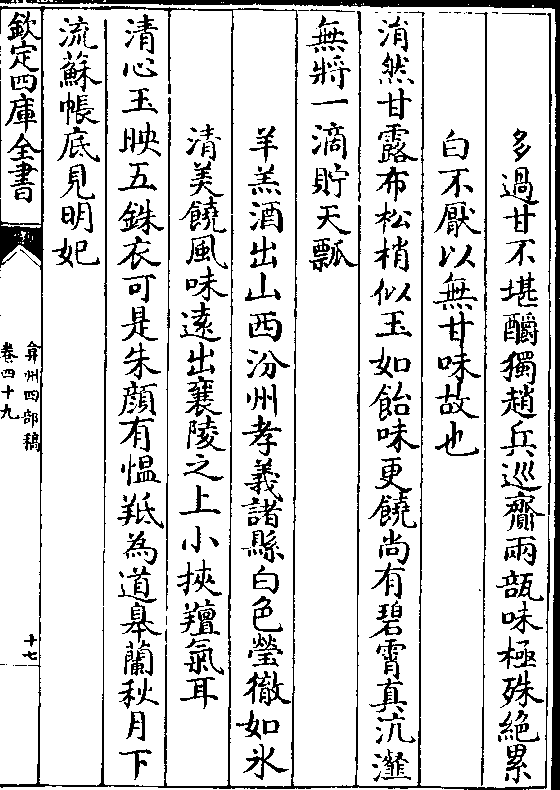 多過甘不堪醑獨趙兵巡齋兩瓿味極殊絕累
白不厭以無甘味故也
湑然甘露布松梢似玉如飴味更饒尚有碧霄真沆瀣
無將一滴貯天瓢
羊羔酒出山西汾州孝義諸縣白色瑩徹如氷
清美饒風味遠出襄陵之上小挾羶氣耳
清心玉映五銖衣可是朱顔有愠羝為道皋蘭秋月下
流蘇帳底見明妃
欽定四庫全書
弇州四部稿
卷四十九
十七